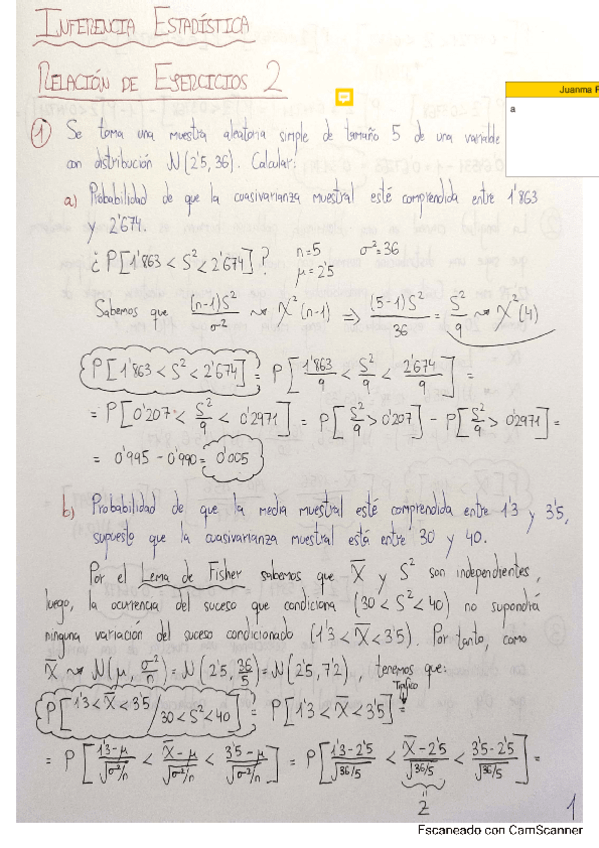 INFERENCIA ESTADÍSTICA
RELACIÓN DE EJERCICIOS 2
Juanma P
a
① Se toma una muestra aleatoria simple de tamaño 5 de una variable
con distribución N(2'5, 36). Calcular:
a) Probabilidad de que la cuasivarianza muestral esté comprendida entre 1'863
y 2'674.
¿P[1'863 < S² < 2'674]? n=5 σ²=36
μ=25
Sabemos que (n-1)S²/σ² ⇝ χ²(n-1) ⇒ (5-1)S²/36 = S²/9 ⇝ χ²(4)
P[1'863 < S² < 2'674] = P[1'863/9 < S²/9 < 2'674/9] =
= P[0'207 < S²/9 < 0'2971] = P[S²/9 > 0'207] - P[S²/9 > 0'2971] =
= 0'995 - 0'990 = 0'005
b) Probabilidad de que la media muestral esté comprendida entre 1'3 y 3'5,
supuesto que la cuasivarianza muestral está entre 30 y 40.
Por el Lema de Fisher sabemos que X̄ y S² son independientes,
luego, la ocurrencia del suceso que condiciona (30 < S² < 40) no supondrá
ninguna variación del suceso condicionado (1'3 < X̄ < 3'5). Por tanto, como
X̄ ⇝ N(μ, σ²/n) = N(2'5, 36/5) = N(2'5, 7'2), tenemos que:
Tipifico
P[1'3 < X̄ < 3'5 / 30 < S² < 40] = P[1'3 < X̄ < 3'5] =
= P[1'3-μ/√σ²/n < X̄-μ/√σ²/n < 3'5-μ/√σ²/n] = P[1'3-2'5/√36/5 < X̄-2'5/√36/5 < 3'5-2'5/√36/5] =
Z
1
Escaneado con CamScanner